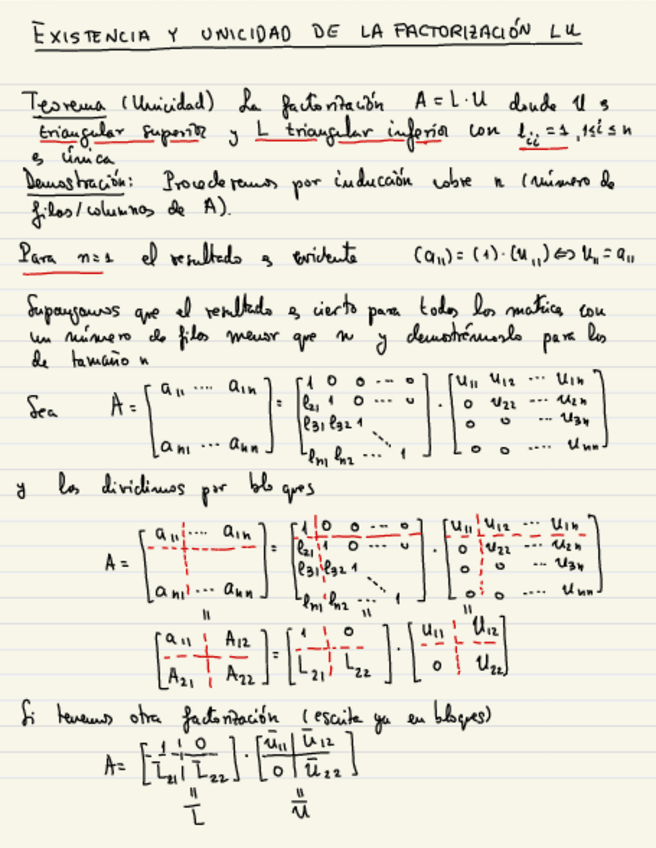 EXISTENCIA Y UNICIDAD DE LA FACTORIZACIÓN LU
Teorema (Unicidad) La factorización A = L·U donde U es
triangular superior y L triangular inferior con l_ii = 1, 1≤i≤n
es única
Demostración: Procederemos por inducción sobre n (número de
filas/columnas de A).
Para n=1 el resultado es evidente (a11) = (1)·(u11) ⇔ u11 = a11
Supongamos que el resultado es cierto para todas las matrices con
un número de filas menor que n y demostrémoslo para las
de tamaño n
Sea A = [a11 ···· a1n ; an1 ··· ann] = [1 0 0 ··· 0 ; l21 1 0 ··· 0 ; l31 l32 1 ; ln1 ln2 ··· 1] · [u11 u12 ··· u1n ; 0 u22 ··· u2n ; 0 0 ··· u3n ; 0 0 ···· unn]
y las dividimos por bloques
A = [a11 ···· a1n ; an1 ··· ann] = [1 0 0 ··· 0 ; l21 1 0 ··· 0 ; l31 l32 1 ; ln1 ln2 ··· 1] · [u11 u12 ··· u1n ; 0 u22 ··· u2n ; 0 0 ··· u3n ; 0 0 ···· unn]
= = =
[a11 A12 ; A21 A22] = [1 0 ; L21 L22] · [u11 U12 ; 0 U22]
Si tenemos otra factorización (escrita ya en bloques)
A = [1 0 ; L̄21 L̄22] · [ū11 Ū12 ; 0 Ū22]
= =
L̄ Ū